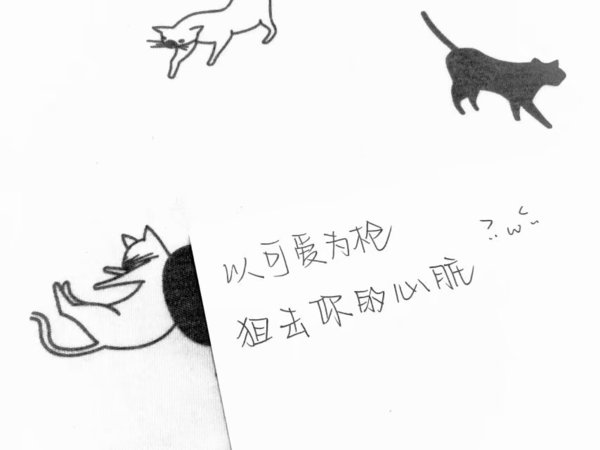 以可爱为枪
狙去你的心脏